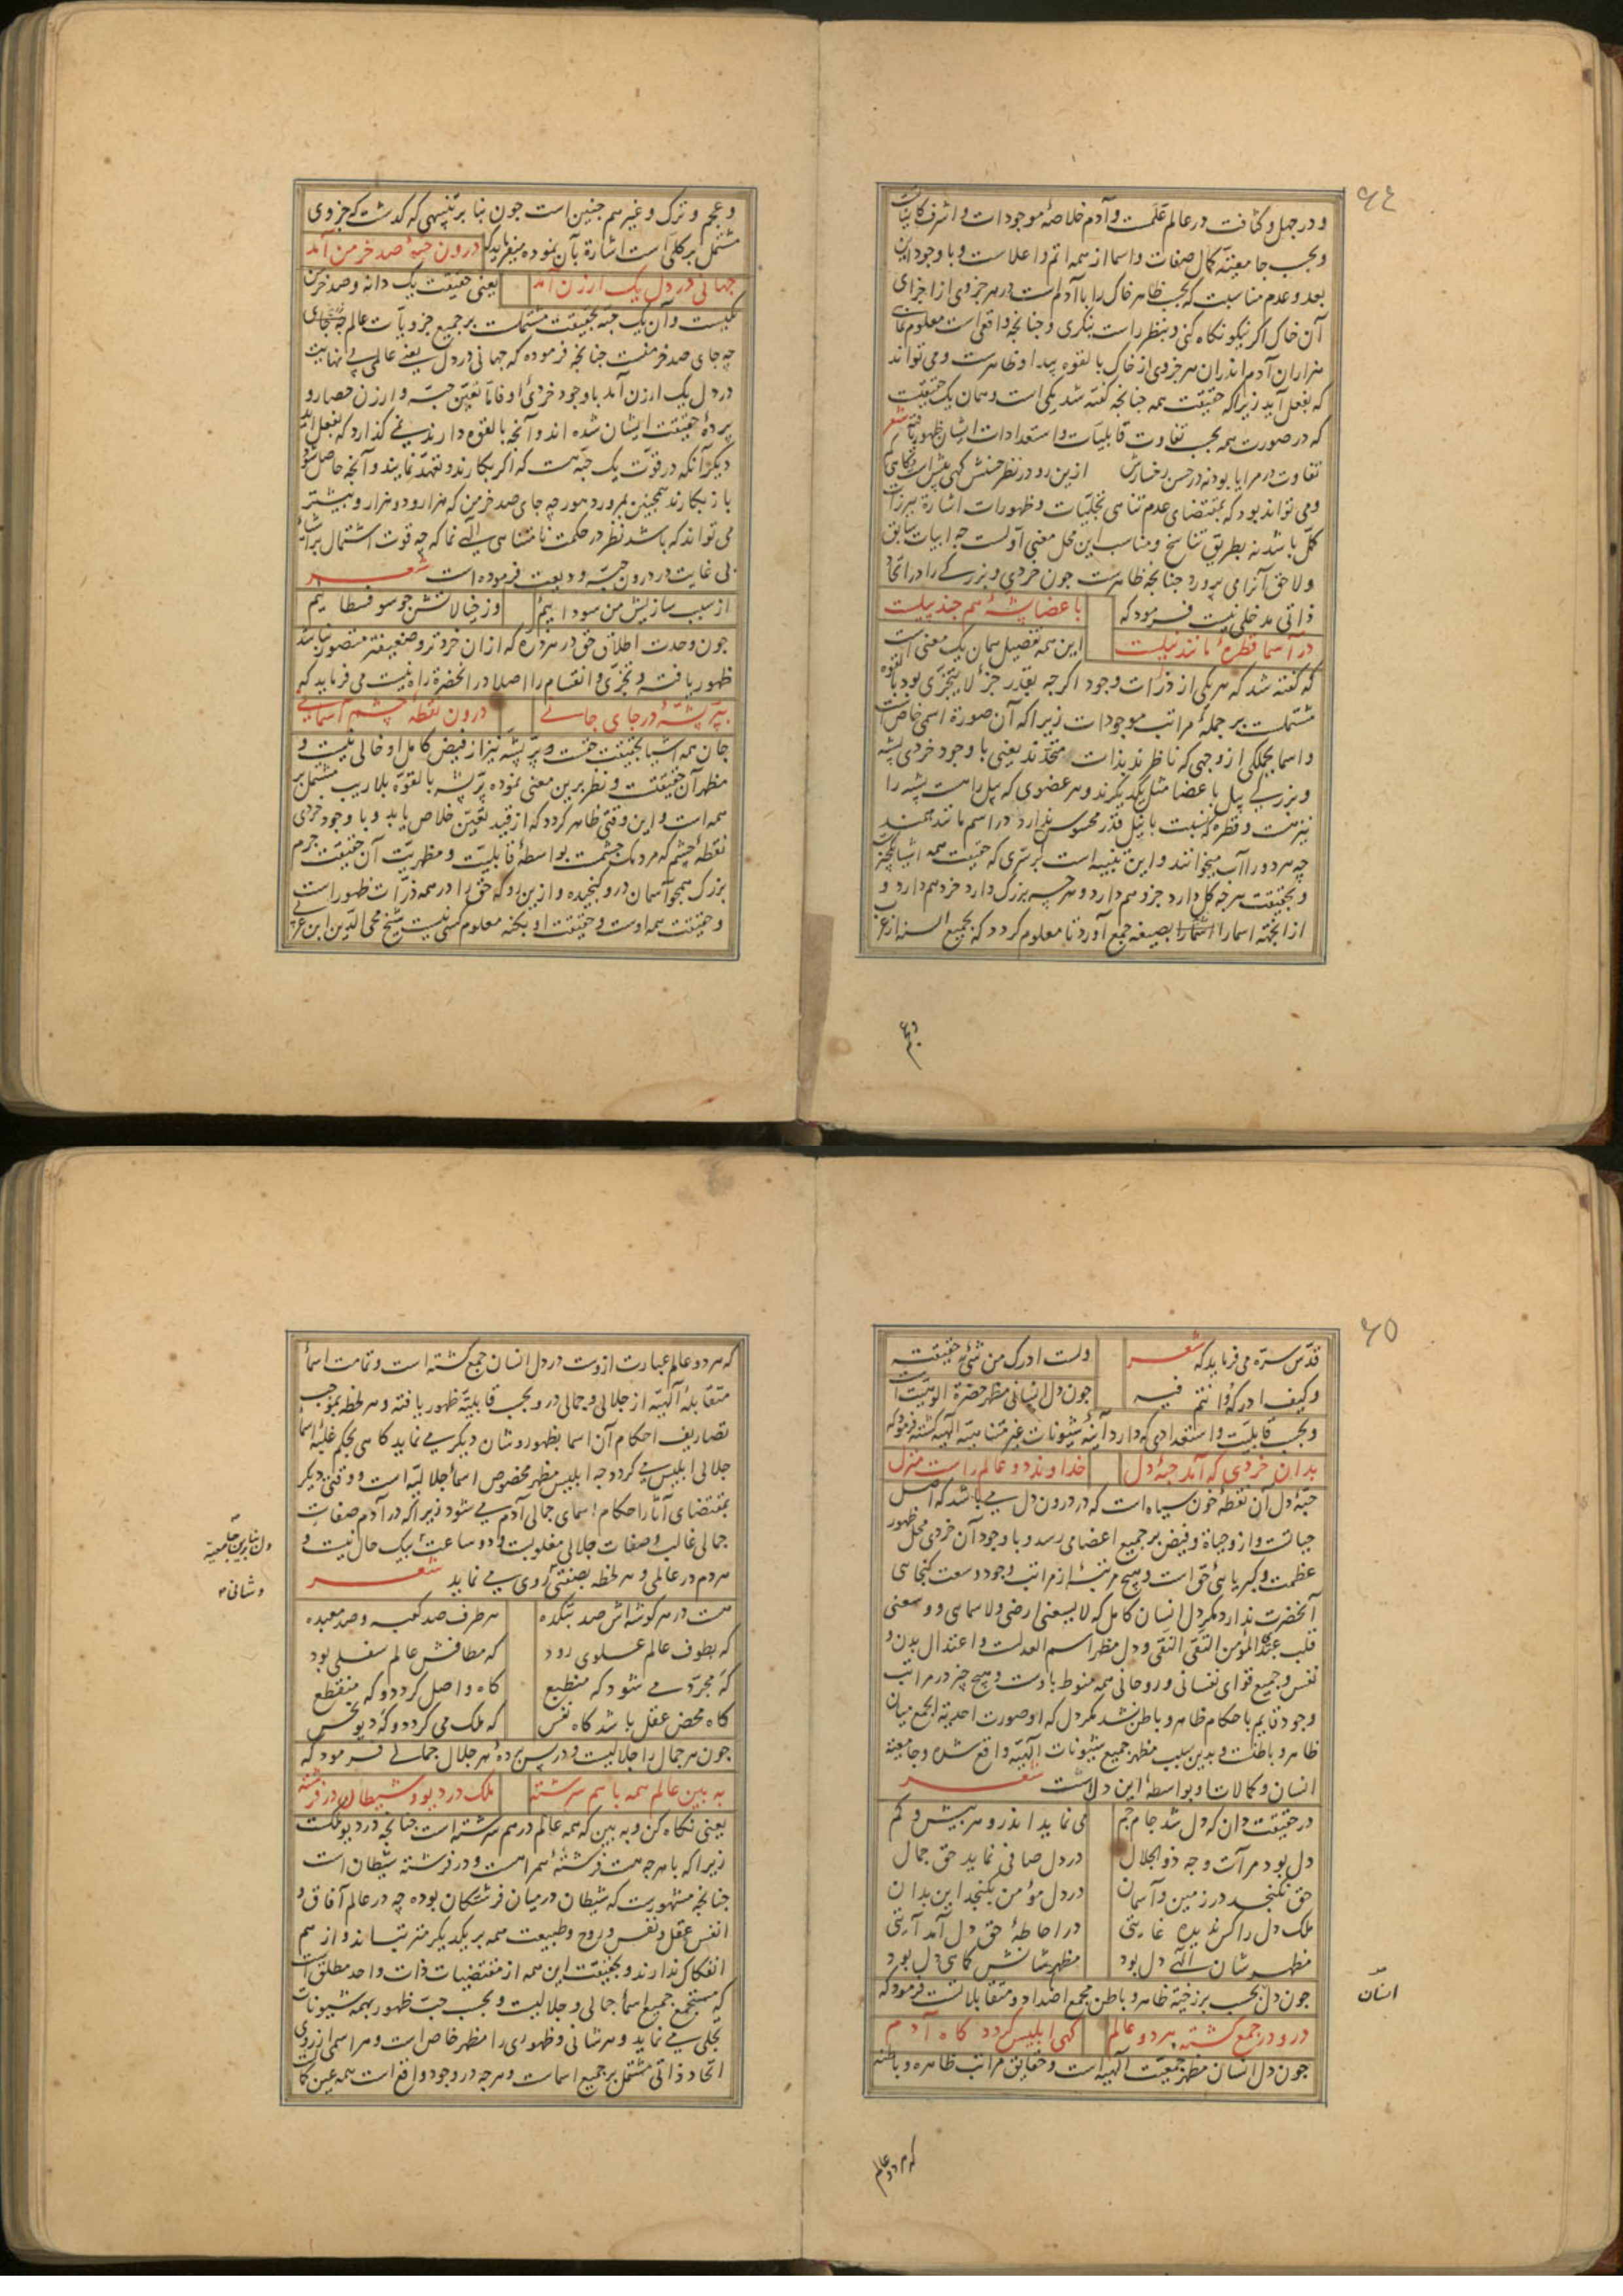 ۶٤
و در جهل و کثافت در عالم علمست و آدم خلاصهٔ موجودات و اشرف کاینات
و بحسب جامعیّت کمال صفات و اسما از همه اتم و اعلاست و با وجود این
بعد و عدم مناسبت که بحسب ظاهر خاک را با آدم است در هر جزوی از اجزای
آن خاک اگر نیکو نگاه کنی و بنظر راست بنگری و چنانچه واقع است معلوم نمایی
هزاران آدم اندران هر جزوی از خاک بالقوه پیدا و ظاهرست و می تواند
که بفعل آید زیرا که حقیقت همه چنانچه گفته شد یکی است و همان یک حقیقت
که در صورت همه بحسب تفاوت قابلیّات و استعدادات ایشان ظهور یافته شعر
تفاوت در مرایا بود نه در حسن رخسارش ازین رو در نظر حسنش کهی بیش است و گاهی کم
و می تواند بود که بمقتضای عدم تناهی تجلیّات و ظهورات اشارة ببرزات
کمّل باشد نه بطریق تناسخ و مناسب این محل معنی اولست چه ابیات سابق
ولاحق آنرا می پرورد چنانچه ظاهرست چون خردی و بزرگی را در اتّحاد
ذاتی مدخلی نیست فرمود که
باعضا پشهٔ هم چند پیلست
در اسما قطرهٔ مانند نیلست
این همه تفصیل همان یک معنی است
که گفته شد که هر یکی از ذرّات وجود اگرچه بقدر جزء لا یتجزّی بود بالقوه
مشتملست بر جملهٔ مراتب موجودات زیرا که آن صورة اسمی خاص است
و اسما بجملگی از وجهی که ناظرند بذات متّحدند یعنی با وجود خردی پشه
و بزرگی پیل باعضا مثل یکدیگرند و هر عضوی که پیل راست پشه را
نیز هست و قطره که نسبت با نیل قدر محسوس ندارد در اسم مانند همند
چه هر دو را آب میخوانند و این تنبیه است بر سرّی که حقیقت همه اشیا یکچیز
و بحقیقت هرچه کل دارد جزو هم دارد و هرچه بزرگ دارد خرد هم دارد و
از اینجهته اسما را بصیغه جمع آورد تا معلوم گردد که بجمیع السنه از عرب
و عجم
و عجم و ترک و غیرهم چنین است چون بنا بر تنبیهی که گذشت که جزوی
مشتمل بر کلی است اشارة بآن نموده میفرماید که درون حبّهٔ صد خرمن آمد
جهانی در دل یک ارزن آمد
یعنی حقیقت یک دانه و صد خرمن
یکیست و آن یک حبّه بحقیقت مشتملست بر جمیع جزویّات عالم
چه جای صد خرمنست چنانچه فرموده که جهانی در دل یعنی عالمی بی نهایت
در دل یک ارزن آمد با وجود خردی او فامّا تعیّن حبّه و ارزن حصار و
پردهٔ حقیقت ایشان شده اند و آنچه بالقوه دارند نمی گذارد که بفعل آید
دیگر آنکه در قوّت یک حبّه هست که اگر بکارند و تعهد نمایند و آنچه حاصل شود
باز بکارند همچنین بمرور دهور چه جای صد خرمن که هزار و دو هزار و بیشتر
می تواند که باشد نظر در حکمت نامتناهی الهی نما که چه قوت اشتمال براشیاء
بی غایت در درون حبّه ودیعت فرموده است شعر
از سبب سازیش من سوداییم
وز خیالاتش چو سوفسطاییم
چون وحدت اطلاق حق در هر ذرّه که ازان خردتر و ضعیفتر متصور نباشد
ظهور یافته و تجزّی و انقسام را اصلا در انحضرة راه نیست می فرماید که
بپرّ پشّهٔ در جای جانی
درون نقطهٔ چشم آسمانی
جان همه اشیا بحقیقت حقست و پرّ پشه نیز از فیض کامل او خالی نیست و
مظهر آن حقیقتست و نظر برین معنی نموده پرّ پشه بالقوّه بلاریب مشتمل بر
همه است و این وقتی ظاهر گردد که از قید تعیّن خلاص یابد و با وجود خردی
نقطهٔ چشم که مردمک چشمست بواسطهٔ قابلیّت و مظهریّت آن حقیقت جرم
بزرک همچو آسمان درو گنجیده و ازین رو که حق را در همه ذرّات ظهور است
و حقیقت همه اوست و حقیقت او بکنه معلوم کسی نیست شیخ محی الدّین ابن عربی
۶۵
قدّس سرّه می فرماید که شعر
ولست ادرک من شیٔ حقیقته
وکیف ادرکه وانتم فیه
چون دل انسانی مظهر حضرة الوهیّت است
و بحسب قابلیّت و استعدادی که دارد آینهٔ شیونات غیر متناهیه الهیه گشته فرمود که
بدان خردی که آمد حبّهٔ دل
خداوند دو عالم راست منزل
حبّهٔ دل آن نقطهٔ خون سیاه است که در درون دل می باشد که اصل
حیاتست و ازو حیاة و فیض بر جمیع اعضا می رسد و با وجود آن خردی محل ظهور
عظمت و کبریایٔ حق است و هیچ مرتبهٔ از مراتب وجود وسعت گنجایی
آنحضرت ندارد مگر دل انسان کامل که لا یسعنی ارضی ولا سمایی و وسعنی
قلب عبدی المؤمن التقی النقی و دل مظهر اسم العدلست و اعتدال بدن و
نفس و جمیع قوای نفسانی و روحانی همه منوط باوست و هیچ چیز در مراتب
وجود قایم باحکام ظاهر و باطن نشد مگر دل که او صورت احدیة الجمع میان
ظاهر و باطنست و بدین سبب مظهر جمیع شیونات الهیّه واقع شده و جامعیّت
انسان و کمالات او بواسطهٔ این دلست شعر
در حقیقت دان که دل شد جام جم
می نماید اندرو هر بیش و کم
دل بود مرآت وجه ذوالجلال
در دل صافی نماید حق جمال
حق نگنجد در زمین و آسمان
در دل مؤمن بگنجد این بدان
ملک دل را کس ندیده غایتی
در احاطهٔ حق دل آمد آیتی
مظهر شان الهی دل بود
مظهر شانش کماهی دل بود
چون دل بحسب برزخیّة ظاهر و باطن مجمع اضداد و متقابلاتست فرمود که
درو در جمع گشته هر دو عالم
کهی ابلیس گردد گاه آدم
چون دل انسان مظهر جمعیّت الهیّه است و حقایق مراتب ظاهره و باطنه
انسان
که هر دو عالم
که هر دو عالم عبارت ازوست در دل انسان جمع گشته است و تمامت اسماء
متقابلهٔ الهیّه از جلالی و جمالی درو بحسب قابلیّة ظهور یافته و هر لحظه بموجب
تصاریف احکام آن اسما بظهور و شان دیگر می نماید گاهی بحکم غلبهٔ اسماء
جلالی ابلیس می گردد چه ابلیس مظهر مخصوص اسماء جلالیّه است و وقتی دیگر
بمقتضای آثار احکام اسمای جمالی آدم می شود زیرا که در آدم صفات
جمالی غالب و صفات جلالی مغلوبست و دو ساعت بیک حال نیست و
هر دم در عالمی و هر لحظه بصفتی روی می نماید شعر
هست در هر گوشه اش صد بتکده
هر طرف صد کعبه و صد معبده
که بطوف عالم علوی رود
که مطافش عالم سفلی بود
که مجرّد می شود که منطبع
گاه واصل گردد و که منقطع
گاه محض عقل باشد گاه نفس
که ملک می گردد و که دیو نحس
چون هر جمال را جلالیست و در پس پردهٔ هر جلال جمالی فرمود که
به بین عالم همه با هم سرشته
ملک در دیو و شیطان در فرشته
یعنی نگاه کن و به بین که همه عالم درهم سرشته است چنانچه در دیو ملکست
زیرا که با هرچه هست فرشتهٔ همراهست و در فرشته شیطان است
چنانچه مشهوریست که شیطان در میان فرشتگان بوده چه در عالم آفاق و
انفس عقل و نفس و روح و طبیعت همه بر یکدیگر مترتب اند و از هم
انفکاک ندارند و بحقیقت این همه از مقتضیات ذات واحد مطلق است
که مستجمع جمیع اسماء جمالی و جلالیست و بحسب حبّ ظهور بهمه شیونات
تجلی می نماید و هر شانی و ظهوری را مظهر خاص است و هر اسمی از روی
اتّحاد ذاتی مشتمل بر جمیع اسماست و هرچه در وجود واقع است همه عین کمالست